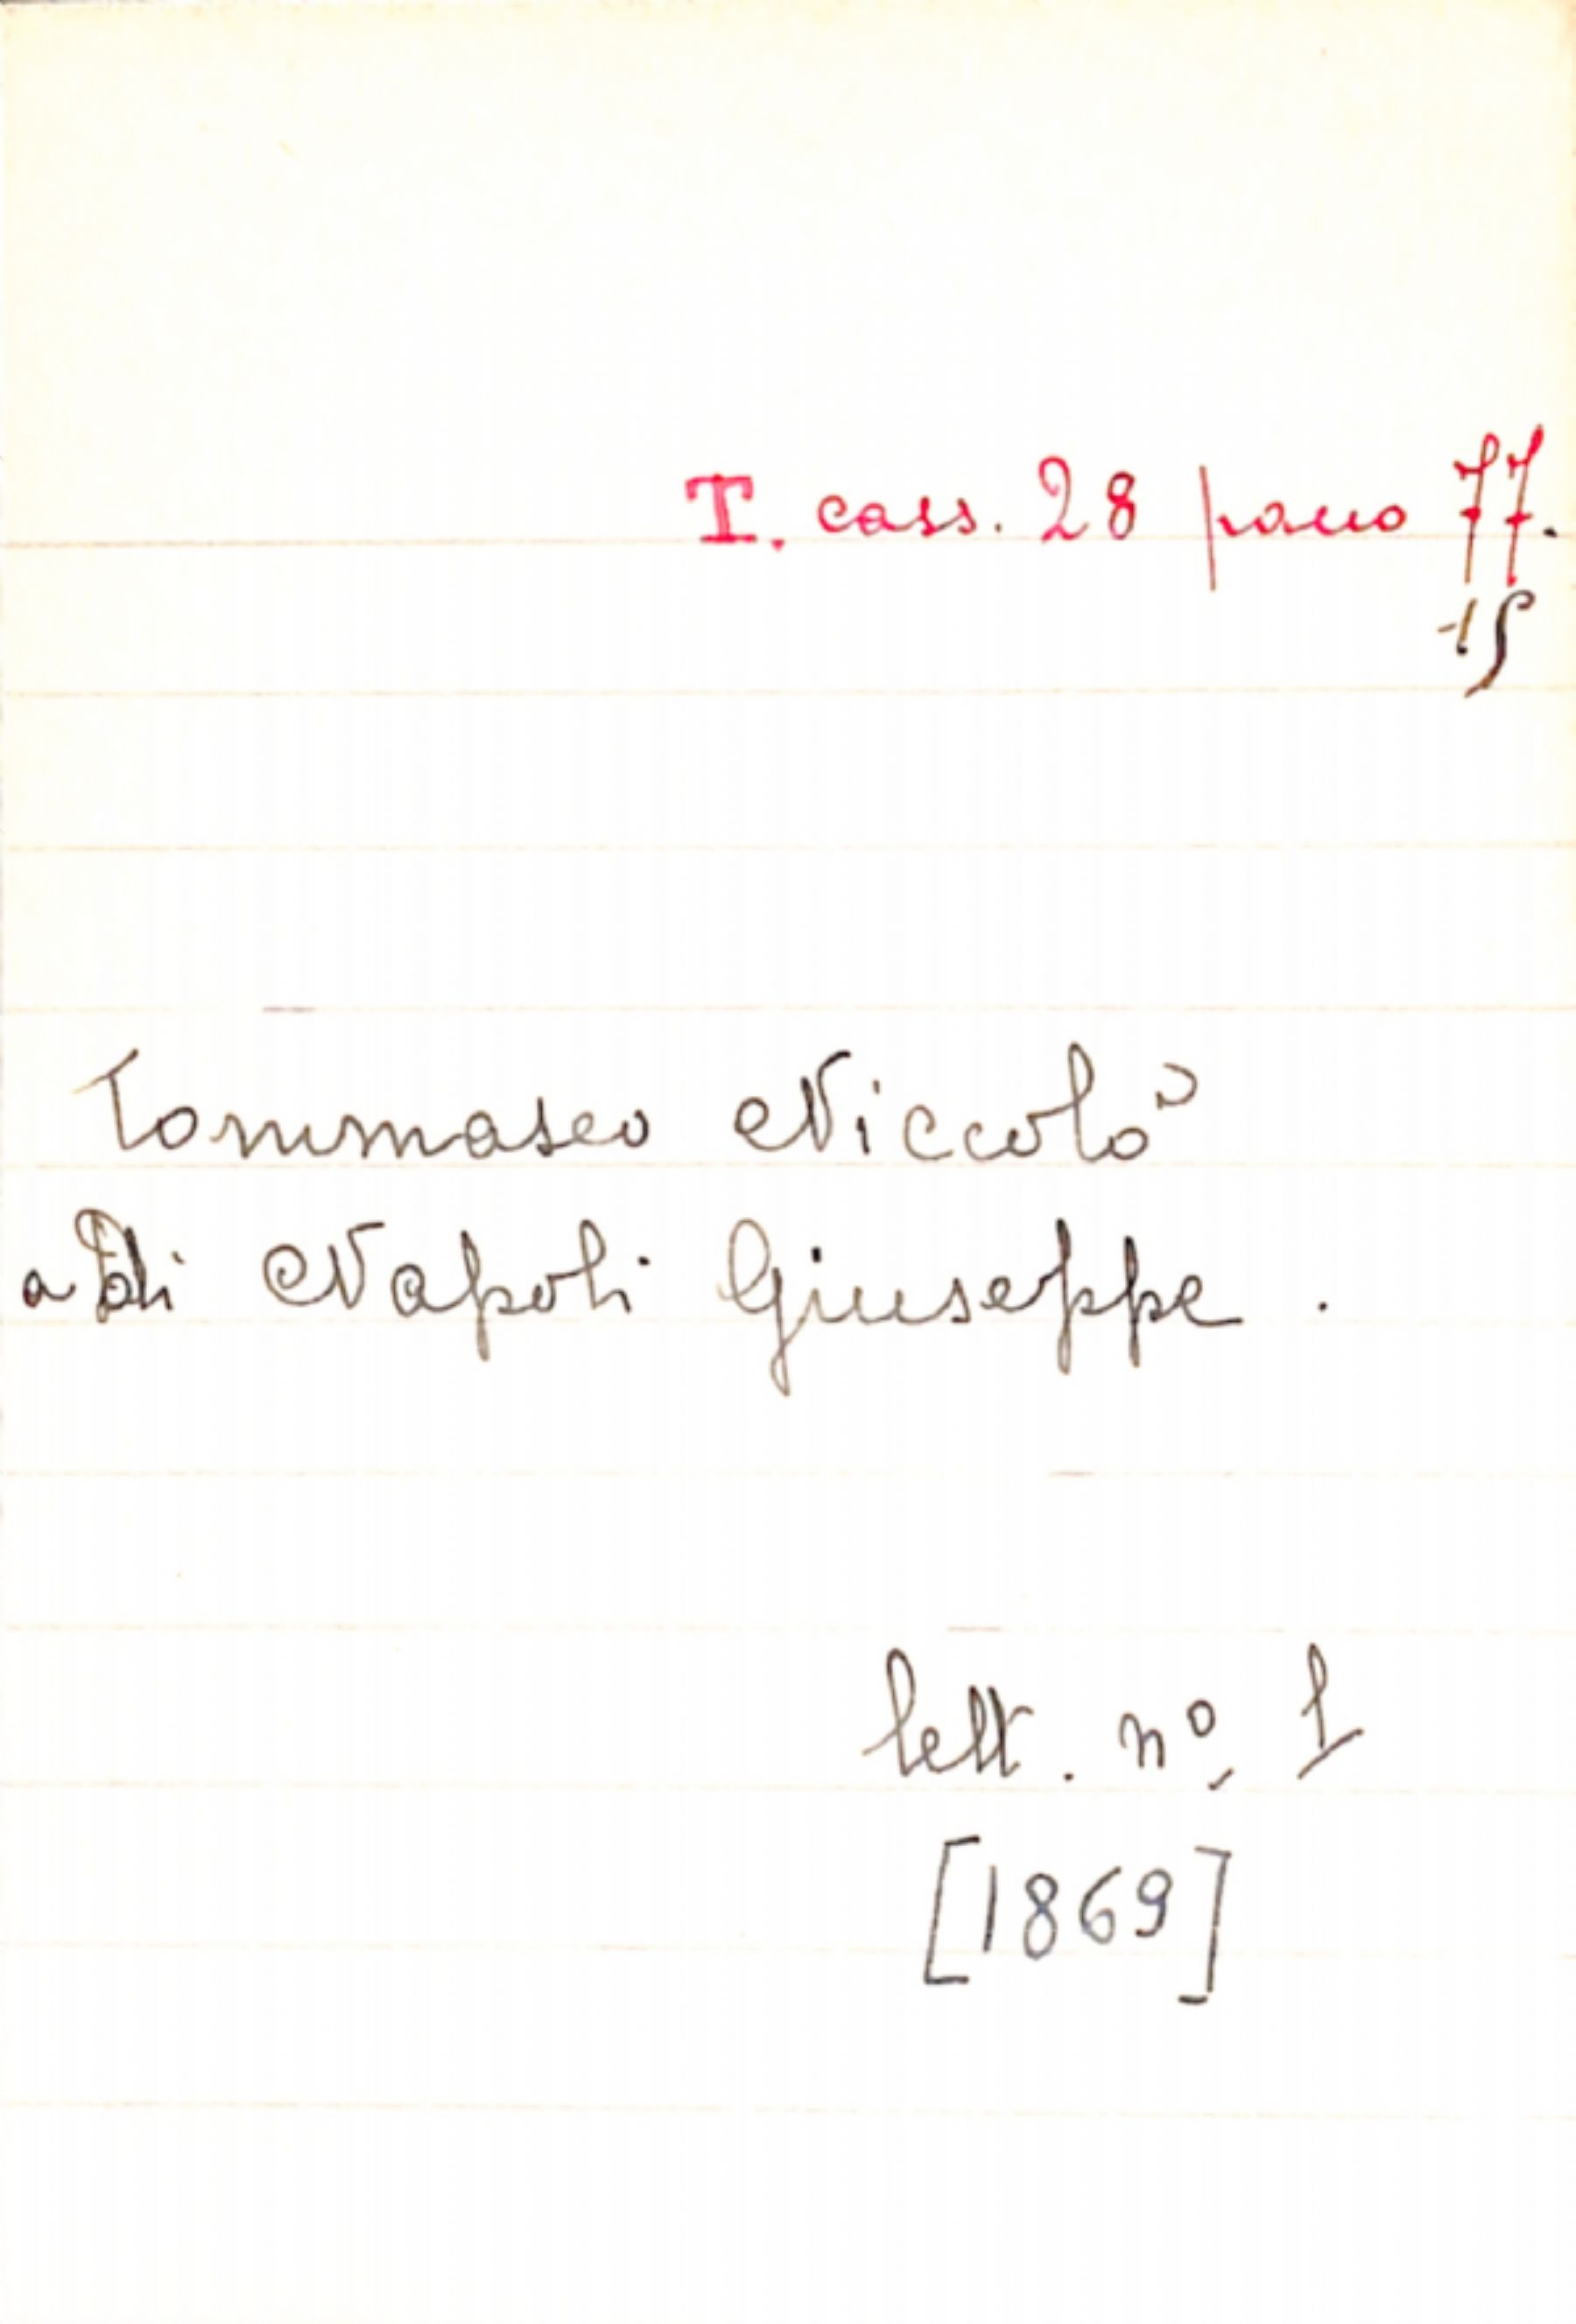 T. cass. 28 pacco 77.
15
Tommaseo Niccolò
a Di Napoli Giuseppe.
lett. nº. 1
[1869]